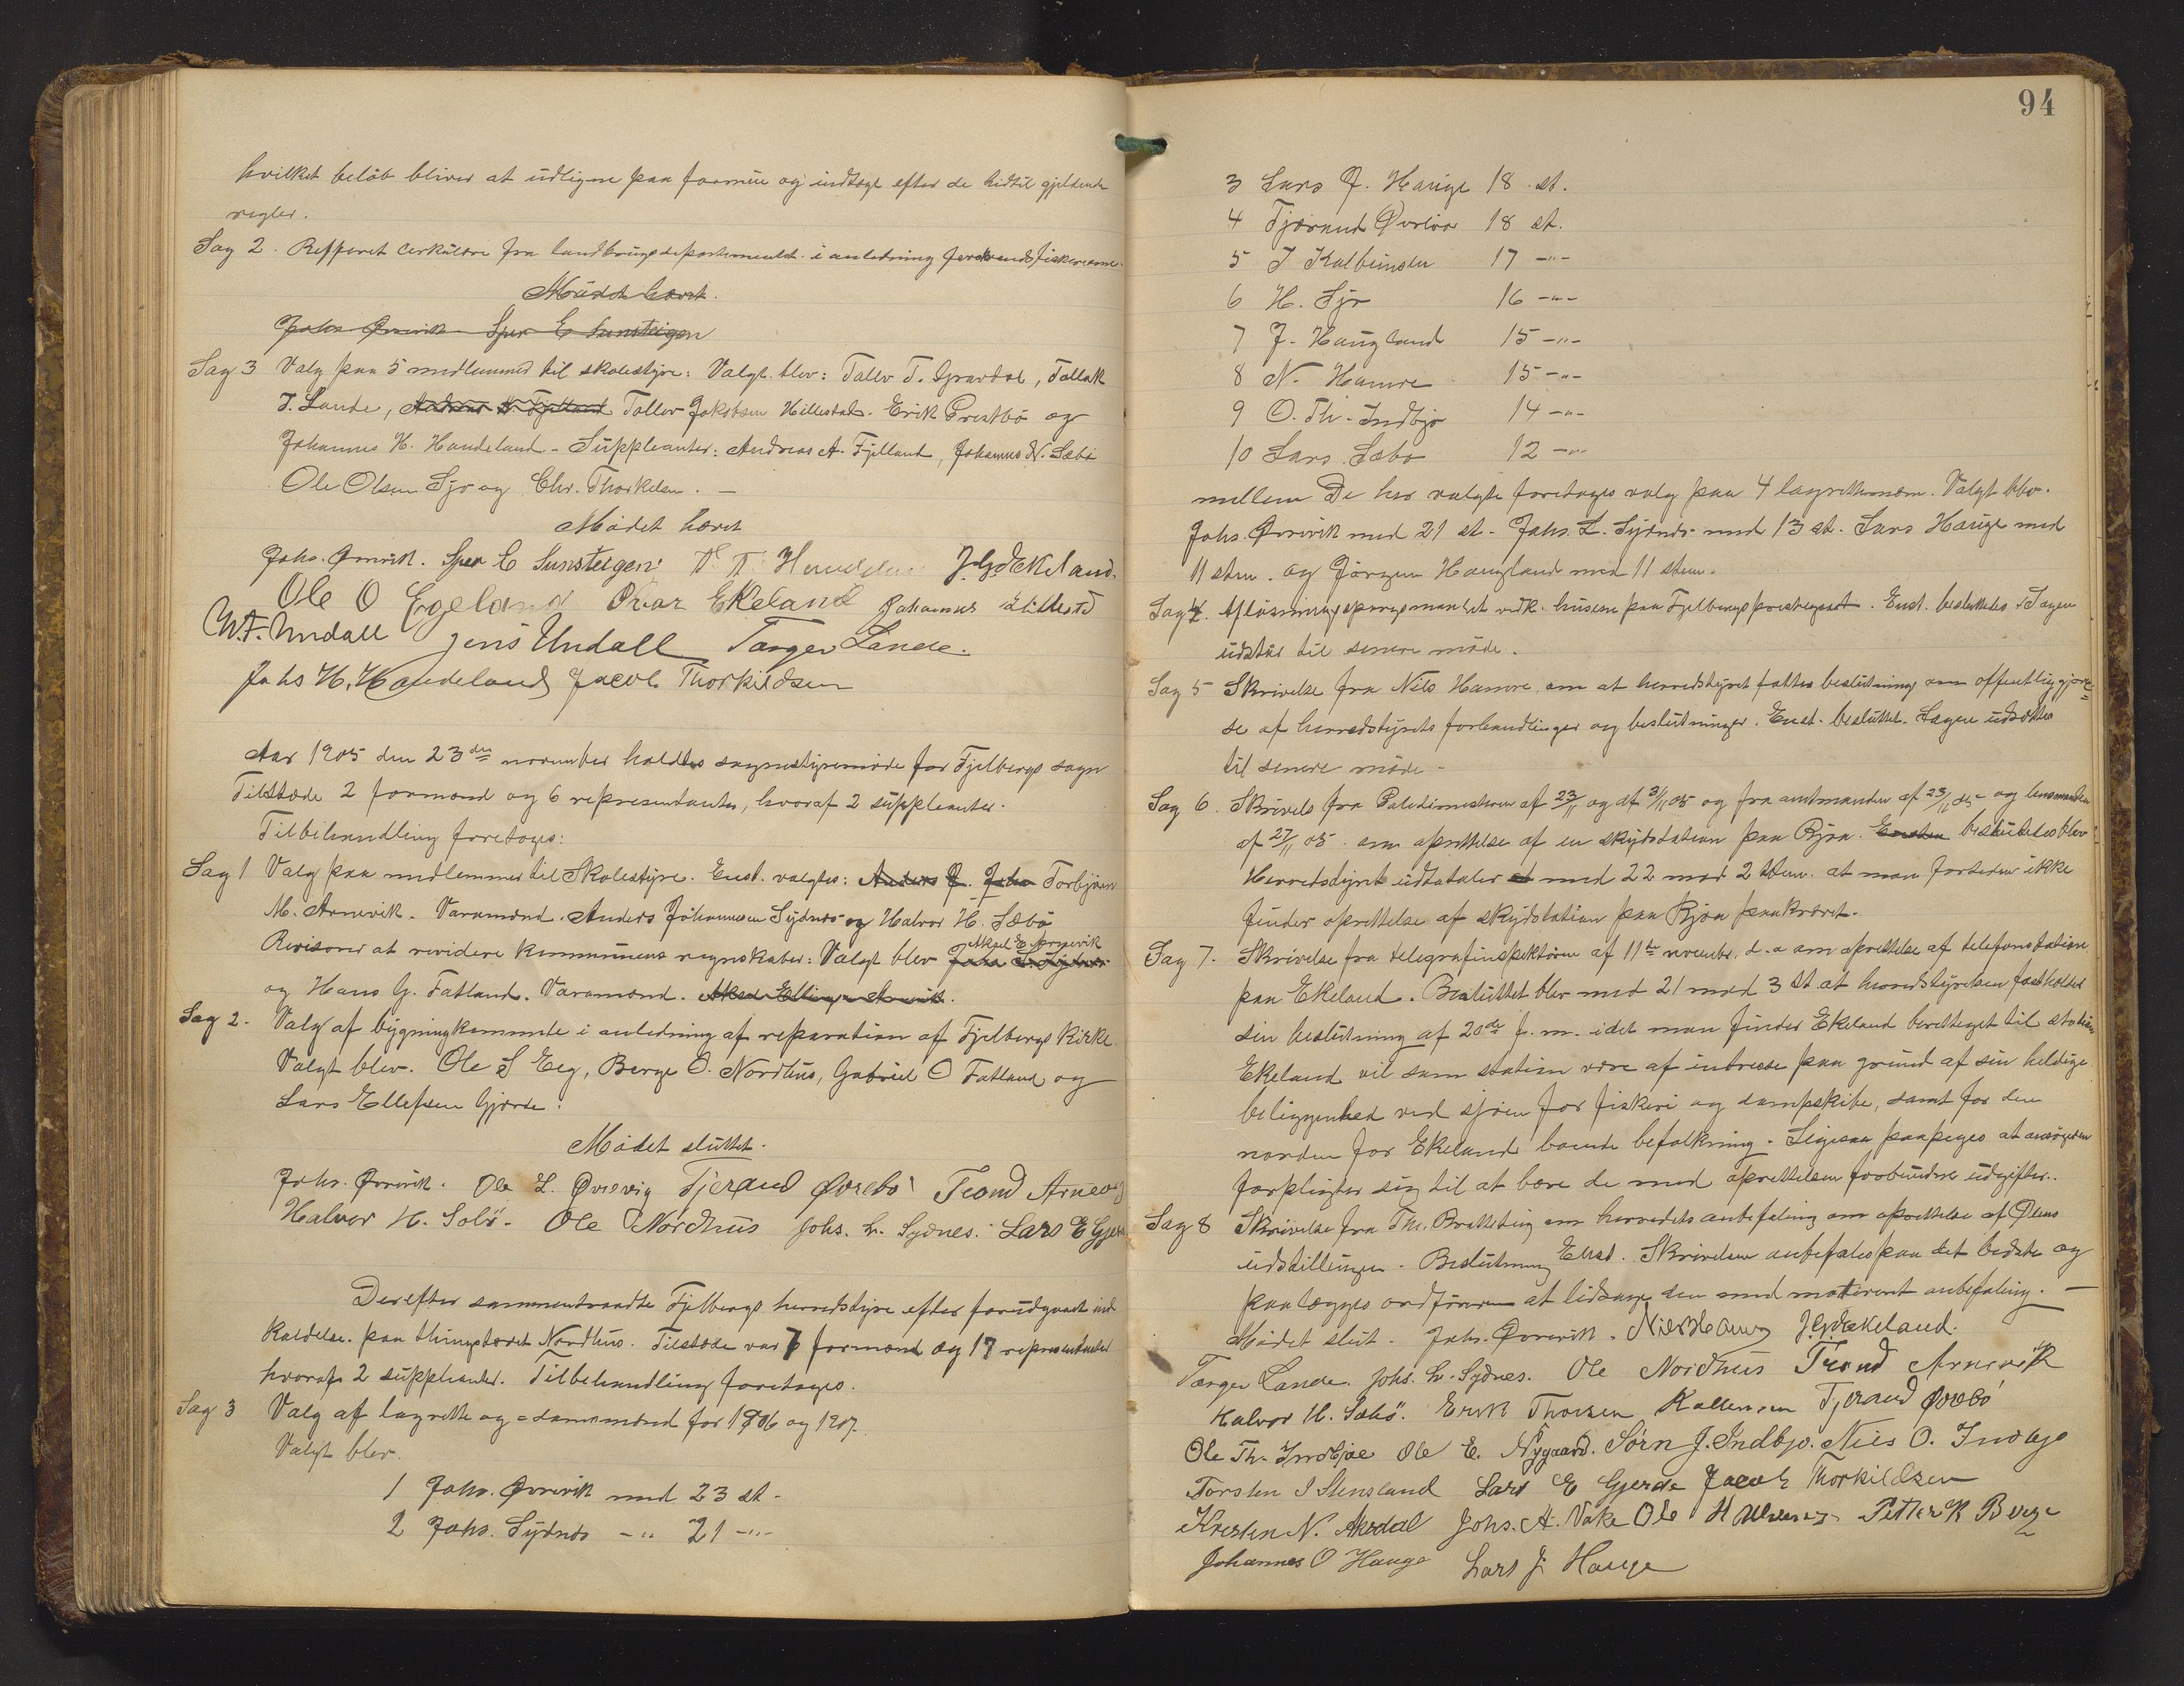 hvilket beløb bliver at udligne paa formue og indtægt efter de hidtil gjeldende
regler.
Sag 2. Refferet cirkulære fra landbrugsdepartementet i anledning ferskvandsfiskerierne.
Mødet hævet.
Johs. Ørevik Sper E Sunsteigen
Sag 3 Valg paa 5 medlemmer til skolestyre: Valgt blev: Tallev T. Opardal, Tollak
T. Lande, Andreas A. Fjelland Tollev Jakobsen Hillestad. Erik Prestbø og
Johannes H. Handeland - Suppleanter: Andreas A. Fjelland, Johannes N. Sæbø
Ole Olsen Sjo og Chr. Thorkelsen. -
Mødet hævet
Johs. Ørevik. Sper E Sunsteigen J. G. Ekeland.
Ole O Egeland Ekeland Johannes Hillestad
W. F. Undall Jens Undall Torger Lande.
Johs H. Handeland Jacob Thorkildsen
Aar 1905 den 23de november holdtes sognestyremøde for Fjelbergs sogn
Tilstæde 2 formænd og 6 representanter, hvoraf 2 suppleanter.
Til behandling foretoges:
Sag 1 Valg paa medlemmer til Skolestyre. Enst. valgtes: Anders J. Johs Torbjørn
M. Arnevik. Varamænd. Anders Johannesen Sydnes og Halvor H. Sæbø
Aksel E Arnevik
Revisorer at revidere kommunens regnskaber: Valgt blev Johs L. Sydnes
og Hans G. Fatland. Varamænd. Aksel Ellingsen Arnevik.
Sag 2. Valg af bygningkommite i anledning af reparation af Fjelbergs Kirke.
Valgt blev. Ole S Eeg, Berge O. Nordhus, Gabriel O Fatland og
Lars Ellefsen Gjerde.
Mødet sluttet.
Johs. Ørevik. Ole L. Øvrevig Tjerand Ørebø Trond Arnevig
Halvor H. Sebø. Ole Nordhus Johs. L. Sydnes. Lars E Gjerde
Derefter sammentraadte Fjelbergs herredstyre efter forudgaaet ind
kaldelse. paa thingstedet Nordhus. Tilstæde var 7 formænd og 17 representanter
hvoraf 2 suppleanter. Til behandling foretoges.
Sag 3 Valg af lagrette og = domsmænd for 1906 og 1907.
Valgt blev.
1 Johs. Ørevik med 23 st.
2 Johs. Sydnes -"- 21 -"-
94
3 Lars J. Hauge 18 st.
4 Tjerand Ørebø 18 st.
5 T Kallevinsen 17 -"-
6 H. Sjo 16 -"-
7 J. Haugland 15 -"-
8 N. Hamre 15 -"-
9 O. Th. Indbjo 14 -"-
10 Lars Sæbø 12 -"-
mellem De her valgte foretoges valg paa 4 lagrettemænd. Valgt blev.
Johs. Ørevik med 21 st. Johs. L. Sydnes med 13 st. Lars Hauge med
11 stem. og Jørgen Haugland med 11 stem.
Sag 4. Afløsningsspørgsmaalet vedk. husene paa Fjelbergs prestegaard. Enst. besluttedes: Sagen
udstår til senere møde.
Sag 5 Skrivelse fra Nils Hamre, om at herredstyret fatter beslutning om offentliggjørel=
se af herredstyrets forhandlinger og beslutninger. Enst. besluttet. Sagen udsættes
til senere møde -
Sag 6. Skrivels fra Politimesteren af 23/11 og af 3/11 05 og fra amtmanden af 23/11 05 og lensmanden
af 27/11 05. om oprettelse af en skydsstation paa Bjoa. Ensten besluttedes blev
Herredsstyret udtaler at med 22 mod 2 stem. at man fortiden ikke
finder oprettelse af skydstation paa Bjoa paakrævet.
Sag 7. Skrivelse fra telegrafinspektøren af 11te november d. a om oprettelse af telefonstation
paa Ekeland. Besluttet blev med 21 mod 3 St at herredstyrelsen fastholder
sin beslutning af 20de f. m. idet man finder Ekeland berettiget til station
Ekeland vil som station være af intresse paa grund af sin heldige
beliggenhed ved sjøen for fiskeri og dampskibe, samt for den
norden for Ekeland boende befolkning. Ligesaa paapeges at ansøgeren
forpligter sig til at bære de med oprettelsen forbundne udgifter.
Sag 8 Skrivelse fra Th. Bratteteig om herredets anbefaling om oprettelse af Ølens
udstillingen. Beslutning Enst. Skrivelsen anbefales paa det bedste og
paalægges ordføreren at ledsage den med motiveret anbefaling. -
Mødet slut. Johs. Ørevik. Nils Haug J. G. Ekeland.
Torger Lande. Johs. L. Sydnes. Ole Nordhus Trond Arnevik
Halvor H. Sæbø. Erik Thorsen Tjerand Ørebø
Ole Th. Indbjoe Ole E. Nygaard. Sørn J. Indbjo. Nils O. Indbjo
Torsten I Stensland Lars E Gjerde Jacob Thorkildsen
Kresten N. Aksdal Johs. A. Vake Ole H Petter K Berge
Johannes O Hauge Lars J. Hauge